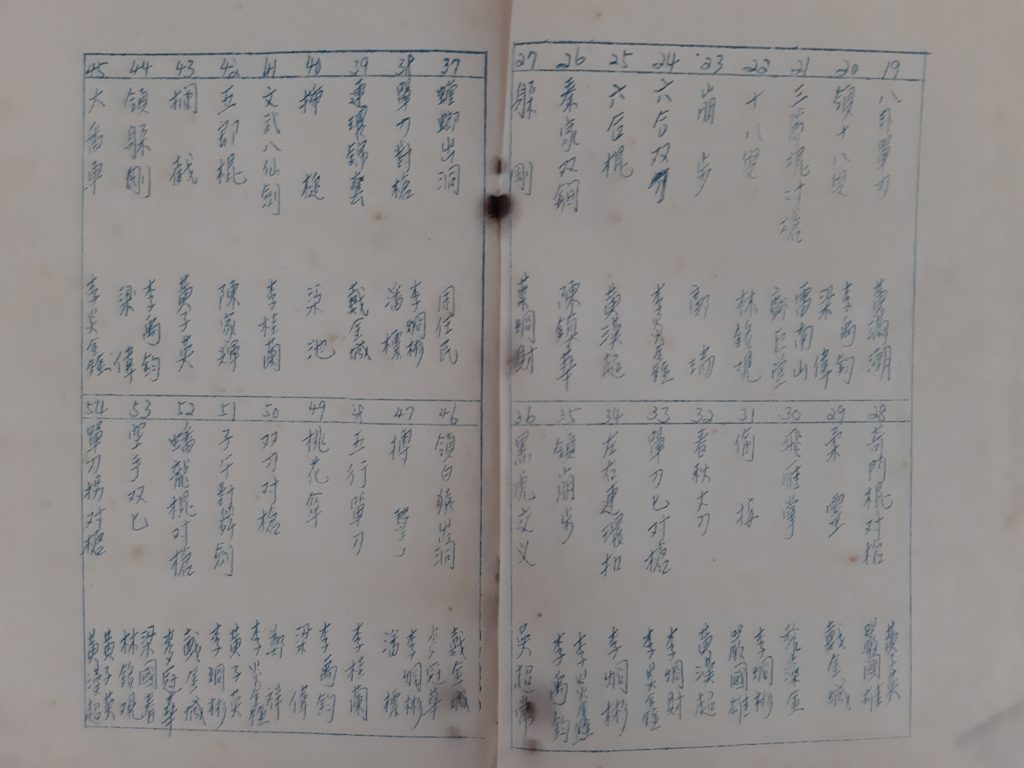 19 八卦單刀 黃滿潮
20 領十八叟 李禹鈞 梁偉
21 三節棍對槍 雷南山
22 十八叟 林銘
23 崩步 瑞
24 六合双 李炎鐘
25 六合棍 黃漢超
26 秦家双鐧 陳鎮華
27 躲剛 葉炯財
28 奇門棍对槍 黃子英 嚴國雄
29 柔灵 戴金城
30 飛雁掌
31 偷桃 李炯彬 嚴國雄
32 春秋大刀 黃漢超
33 單刀匕对槍 李炯財 李炎鐘
34 左右連環扣 李炯彬
35 領崩步 李炎鐘 李禹鈞
36 黑虎交义 吳超
37 螳螂出洞 周任民
38 單刀對槍 李炯彬 潘標
39 連環錦套 戴金城
40 梁池
41 文武八仙劍 李桂蘭
42 五郎棍 陳家輝
43 攔截 黃子英
44 領躲剛 李禹鈞 梁偉
45 大番車 李炎鐘
46 領白猿出洞 戴金城 李冠華
47 李炯彬 潘標
48 五行單刀 李桂蘭
49 桃花傘 李禹鈞 梁偉
50 双刀对槍 鄭祥 李炎鐘
51 子午對劍 黃子英 李炯彬
52 蟠龍棍对槍 戴金城 李冠華
53 空手双匕 梁國春 林銘
54 單刀拐对槍 黃子英 黃漢超